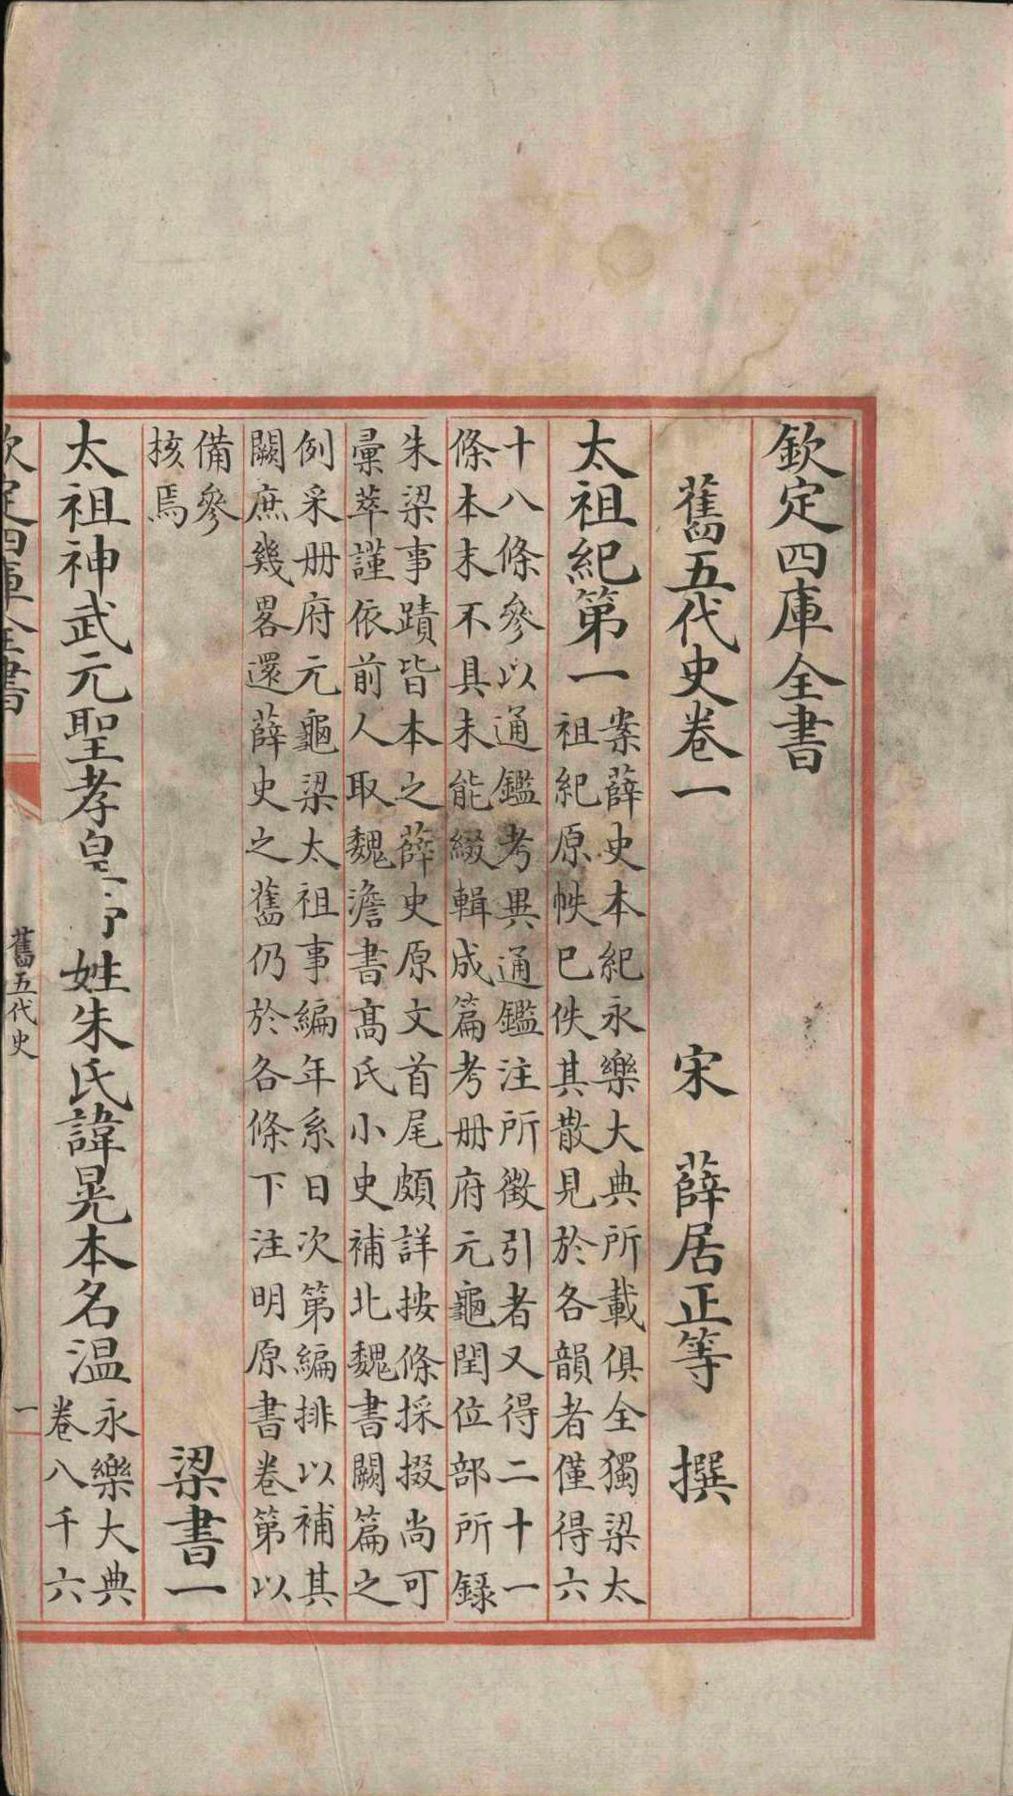 欽定四庫全書
舊五代史卷一
宋 薛居正等 撰
太祖紀第一
案薛史本紀永樂大典所載俱全獨梁太
祖紀原帙已佚其散見於各韻者僅得六
十八條參以通鑑考異通鑑注所徵引者又得二十一
條本末不具未能綴輯成篇考册府元龜閏位部所録
朱梁事蹟皆本之薛史原文首尾頗詳按條採掇尚可
彙萃謹依前人取魏澹書高氏小史補北魏書闕篇之
例采册府元龜梁太祖事編年系日次第編排以補其
闕庶幾畧還薛史之舊仍於各條下注明原書卷第以
備參
核焉
梁書一
太祖神武元聖孝皇 姓朱氏諱晃本名温
永樂大典
卷八千六
欽定四庫全書
舊五代史
一